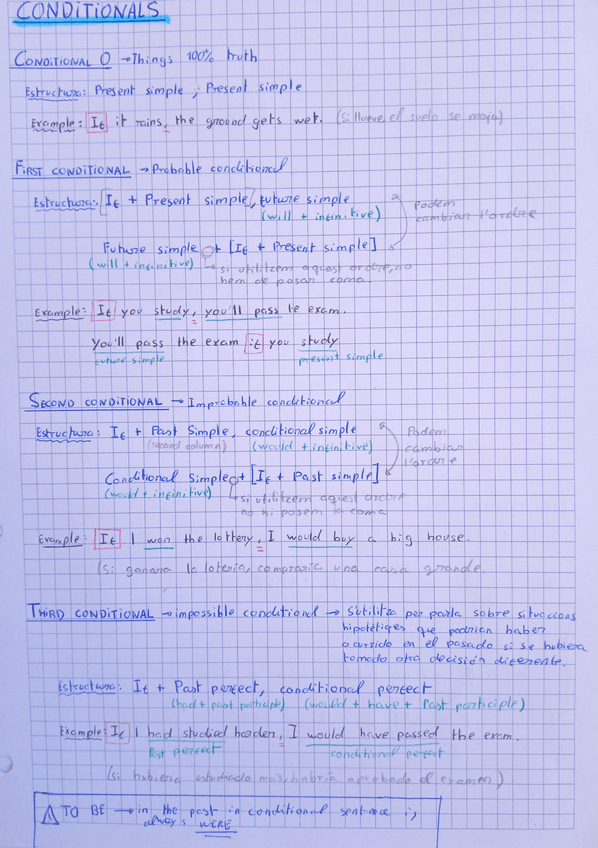 CONDITIONALS
CONDITIONAL 0 → Things 100% truth
Estructura: Present simple , Present simple
Example: If it rains, the ground gets wet. (Si llueve, el suelo se moja)
FIRST CONDITIONAL → Probable conditional
Estructura: [If + Present simple], future simple
(will + infinitive)
Podem
cambiar l'ordre
Future simple + [If + Present simple]
(will + infinitive) → si utilitzem aquest ordre, no
hem de posar coma.
Example: If you study, you'll pass te exam.
You'll pass the exam if you study
future simple present simple
SECOND CONDITIONAL → Improbable conditional
Estructura: If + Past Simple, conditional simple
(second column) (would + infinitive)
Podem
cambiar
l'ordre
Conditional Simple + [If + Past simple]
(would + infinitive) → si utilitzem aquest ordre
no hi posem la coma
Example: If I won the lottery, I would buy a big house.
(Si ganara la loteria, compraria una casa grande.
THIRD CONDITIONAL → impossible conditional → S'utilitza per parla sobre situacions
hipotètiques que podrian haber
ocurrido en el pasado si se hubiera
tomado otra decisión diferente.
Estructura: If + Past perfect, conditional perfect
(had + past participle) (would + have + Past participle)
Example: If I had studied harder, I would have passed the exam.
Past perfect conditional perfect
(si hubiera estudiado más, habría aprobado el examen)
⚠ TO BE → in the past in conditional sentence is
always WERE